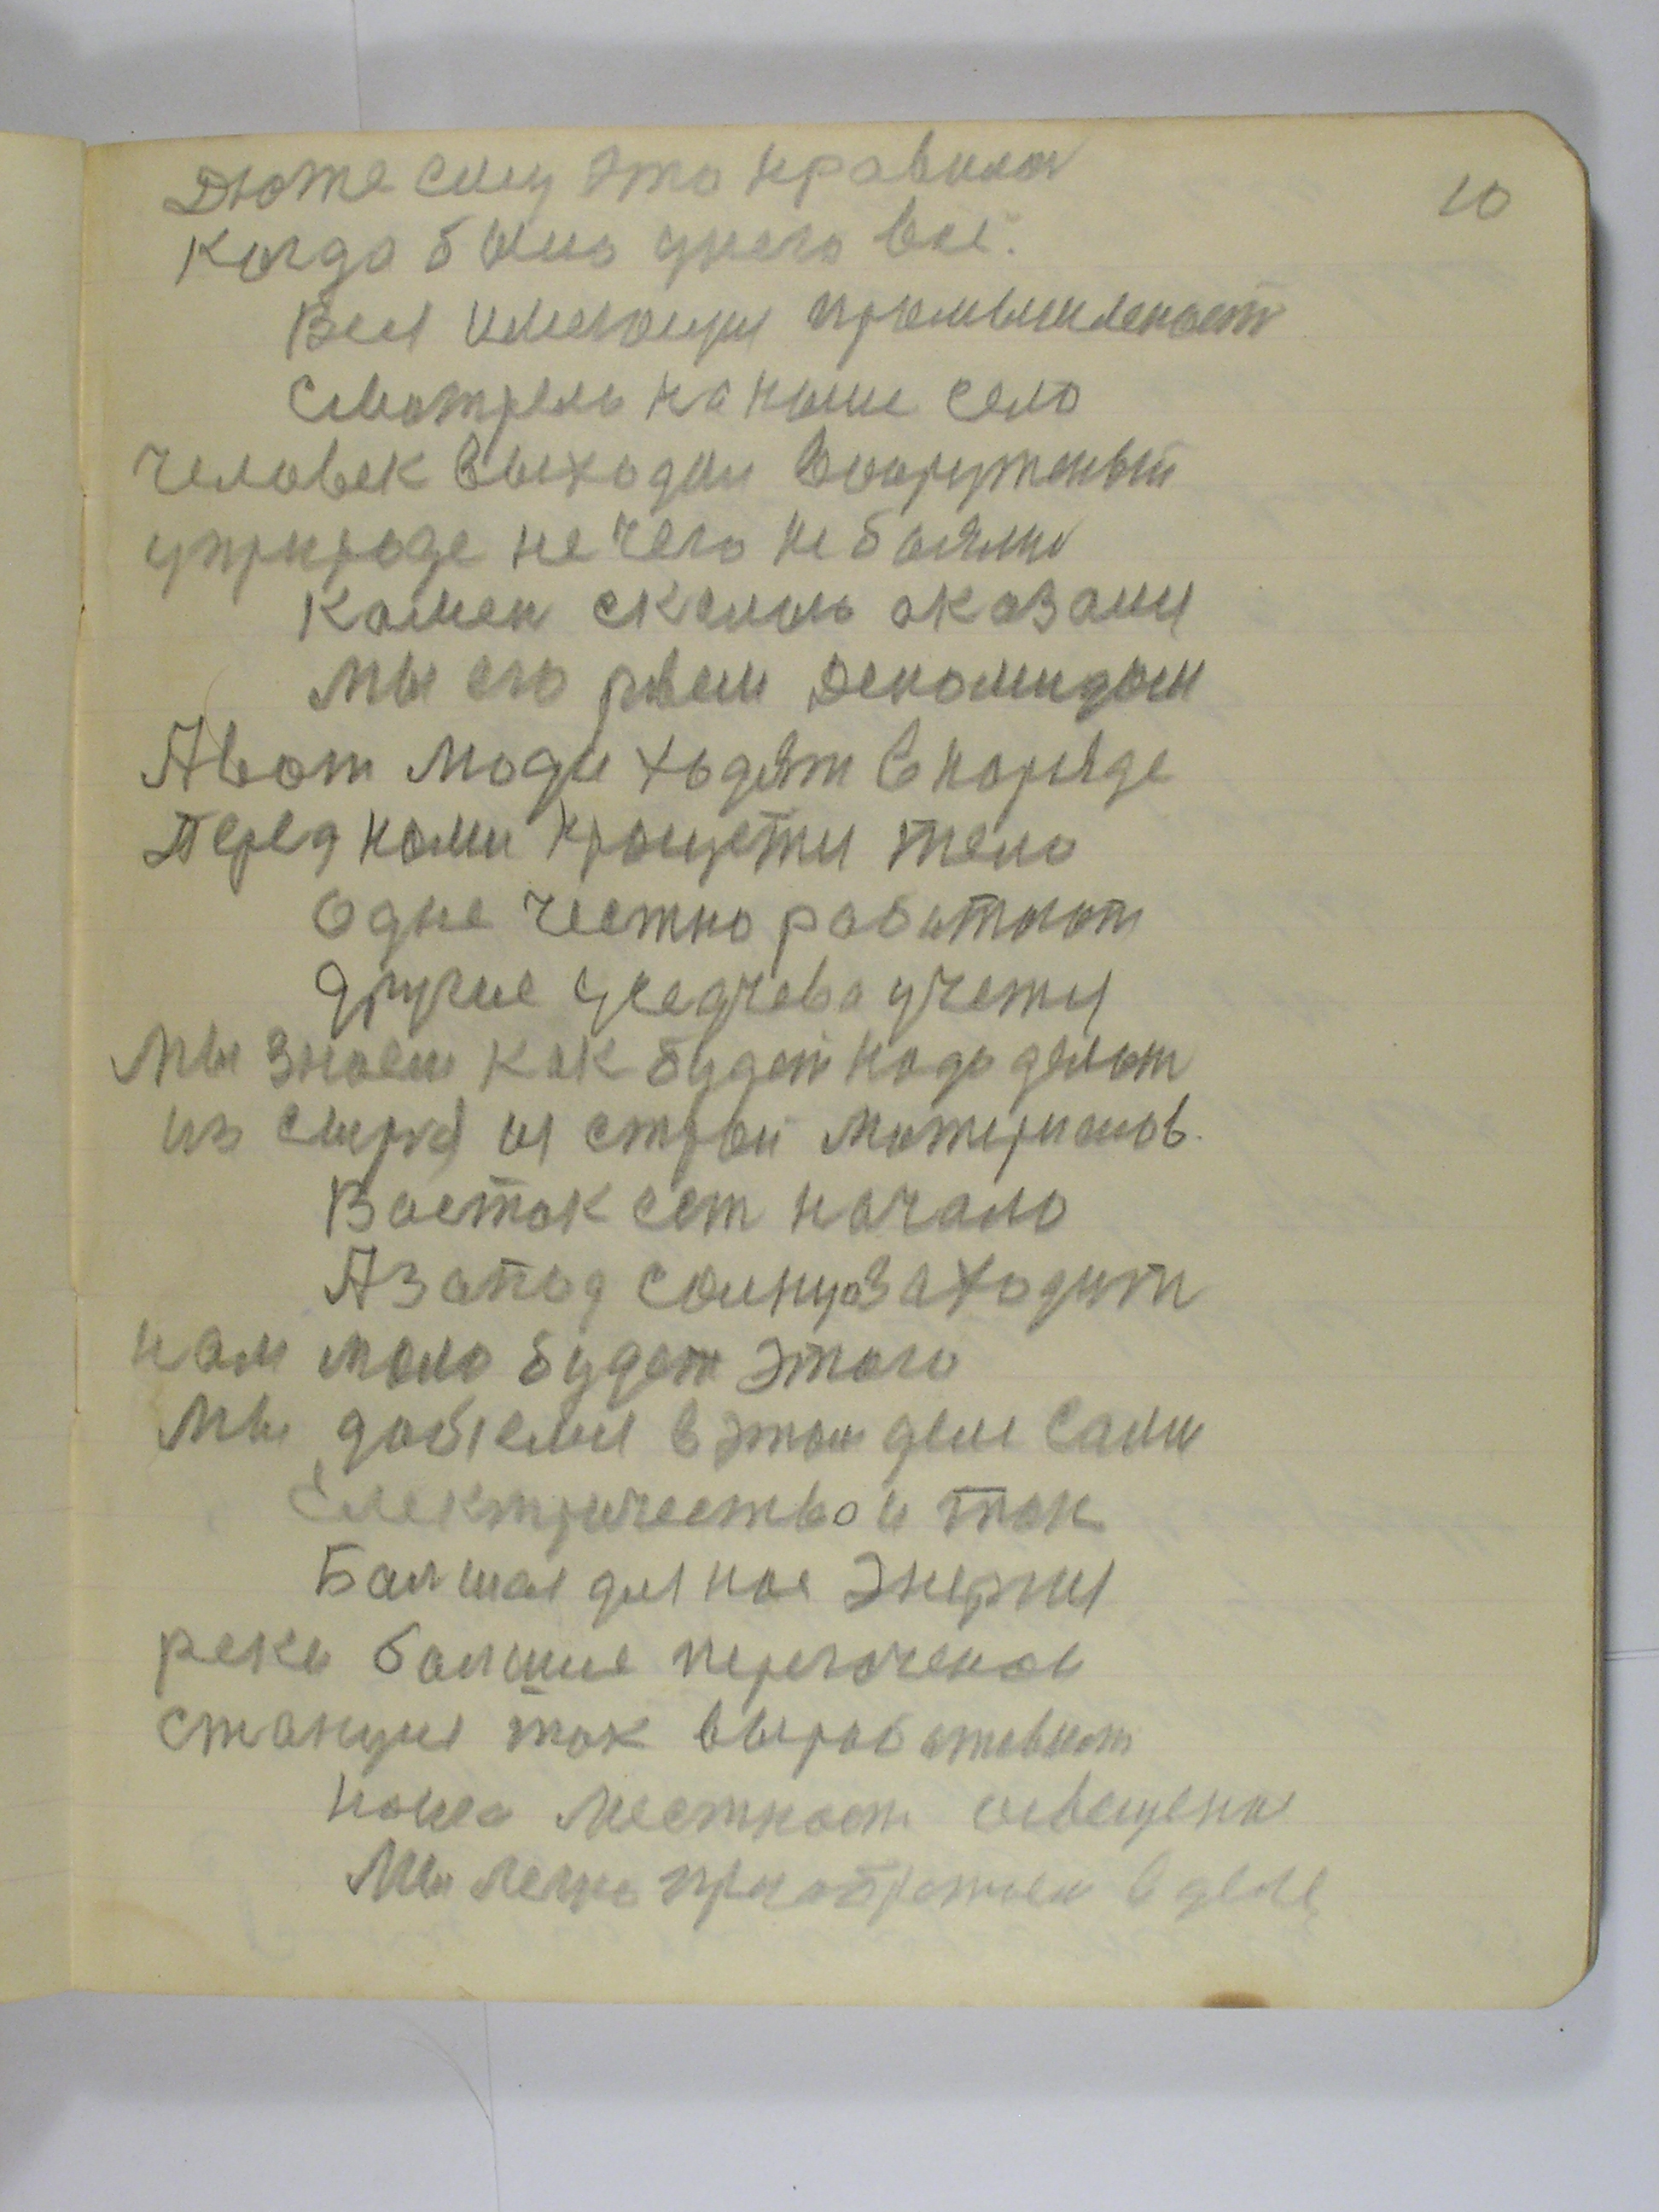 10
Дюже ему это нравилос
Когда было унего все.
Вся имеющия промышленост
Смотрело на наше село
Человек выходил вооруженый
уприроде не чего не боялис
Камен скелило оказался
Мы его рвем Деномидом
Авот Люди ходят в наряде
Перед нами процетти тело
Одне честно работают
Другие учатся
Мы знаем как будет надо делат
из сыря и строй материалов.
Восток ест начало
Азапод солнцо заходит
нам мало будет этого
Мы добъемся в этом деле сами
Електричество и ток
Балшая для нас Энергия
реки балшие перегоченои
станция ток вырабатевает
наша местност освещена
Мы легко приображен в деле